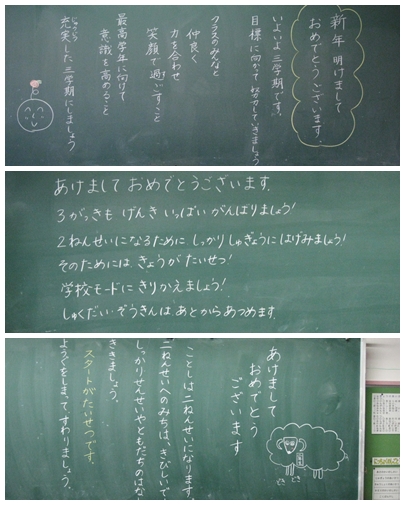 新年 明けまして
おめでとうございます。
いよいよ三学期です。
目標に向かって 努力していきましょう
クラスのみんなと
仲良く
力を合わせ
笑顔で過ごすこと
最高学年に向けて
意識を高めること
じゅうじつ
充実した三学期にしましょう
あけまして おめでとうございます。
3がっきも げんき いっぱい がんばりましょう!
2ねんせいになるために しっかり しゅぎょうに はげみましょう!
そのためには きょうが たいせつ!
学校モードに きりかえましょう!
しゅくだい・ぞうきんは あとから あつめます。
あけまして
おめでとう
ございます
ことしは二ねんせいになります。
二ねんせいへのみちは、きびしいで
しっかりせんせいやともだちのはな
ききましょう。
スタートがたいせつです。
ようぐをしまってすわりましょう。